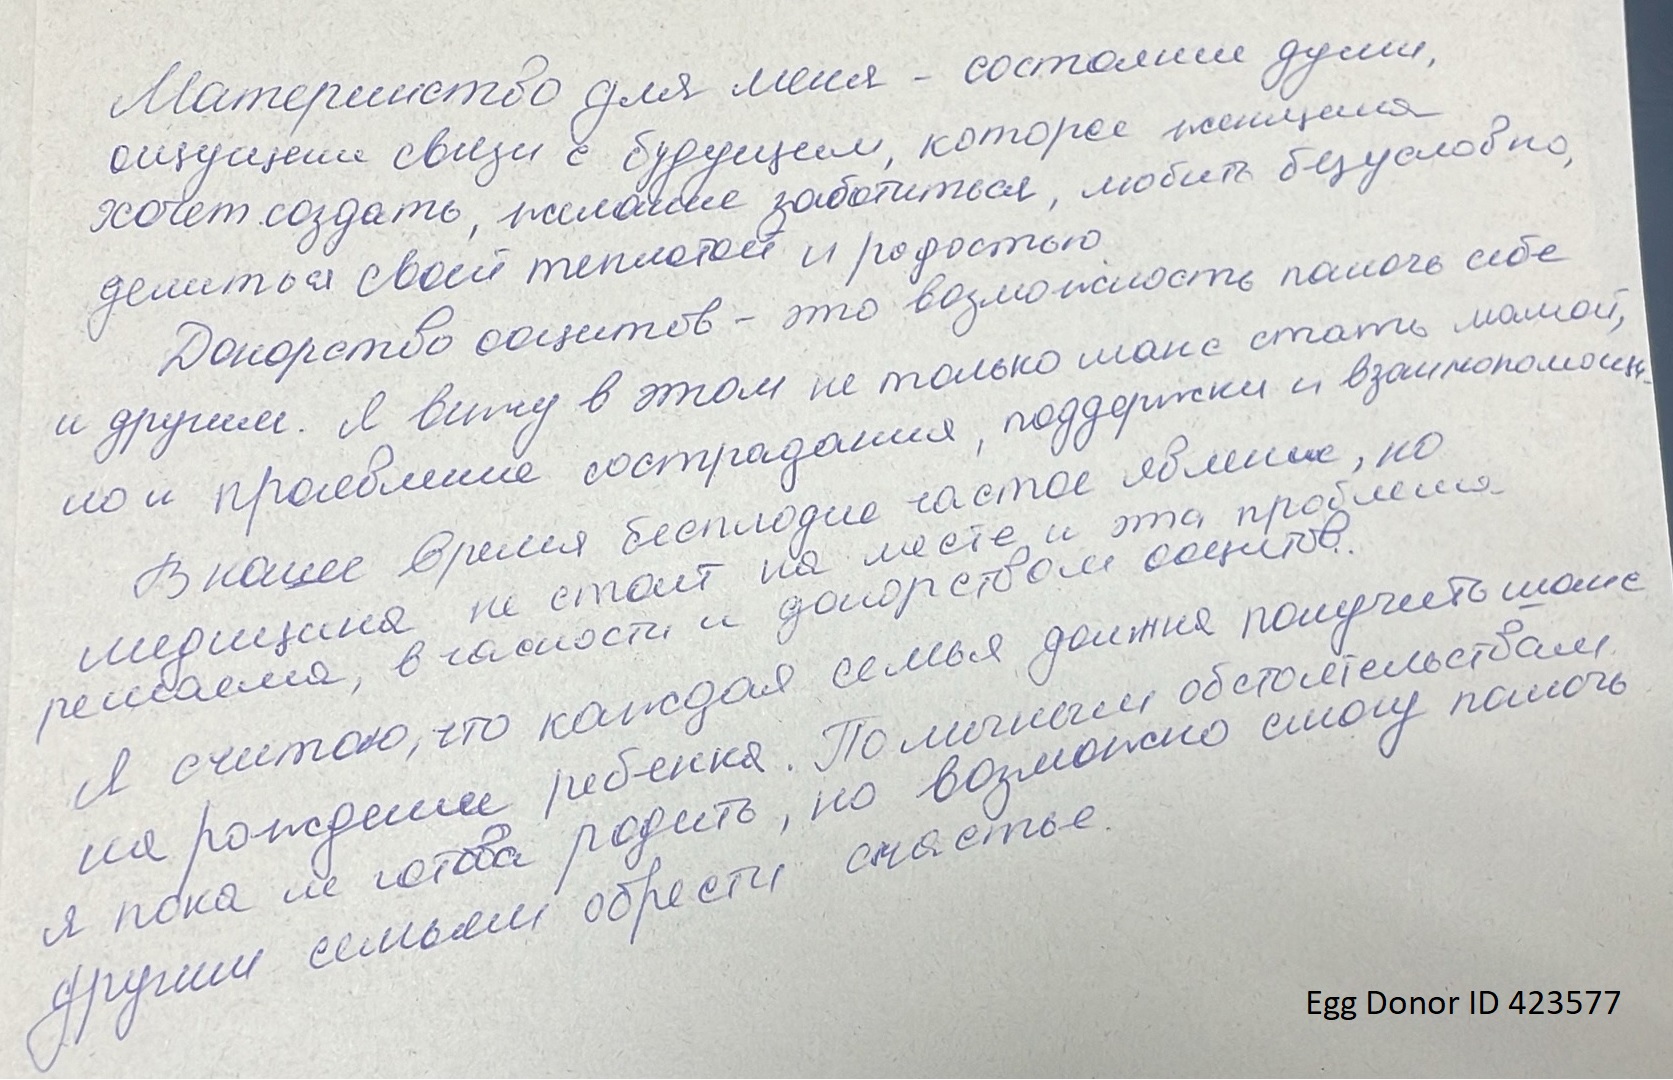 Материнство для меня - состояние души,
ощущение связи с будущим, которое женщина
хочет создать, желание заботиться, любить безусловно,
делиться своей теплотой и радостью
Донорство ооцитов - это возможность помочь себе
и другим. Я вижу в этом не только шанс стать мамой,
но и проявление сострадания, поддержки и взаимопомощи.
В наше время бесплодие частое явление, но
медицина не стоит на месте и эта проблема
решаема, в часности и донорством ооцитов.
Я считаю, что каждая семья должна получить шанс
на рождении ребенка. По личным обстоятельствам
я пока не готова родить, но возможно смогу помочь
другим семьям обрести счастье.
Egg Donor ID 423577